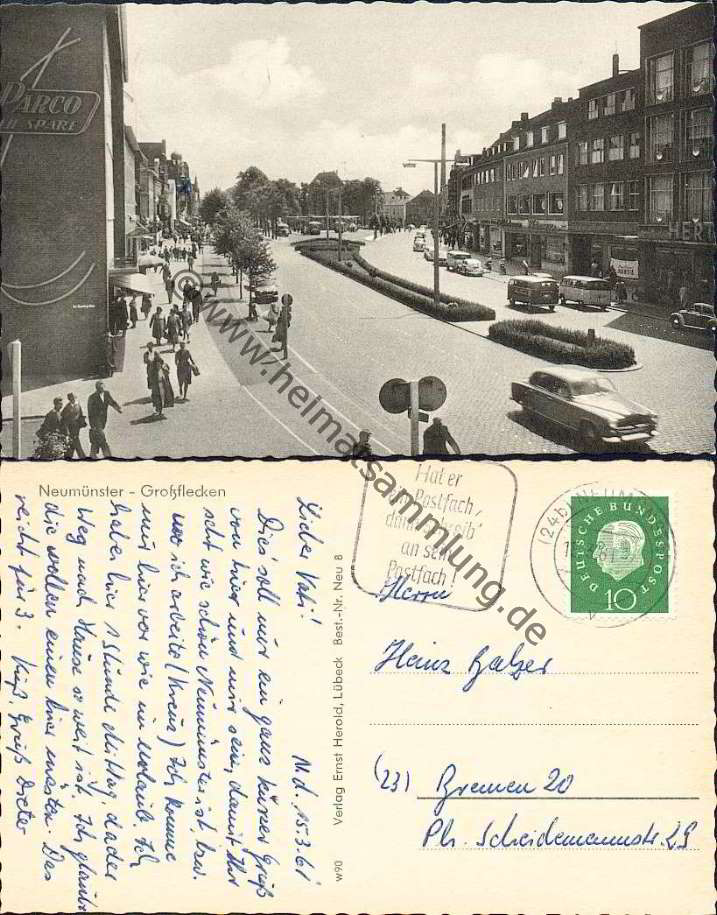 PARCO
SPART
HERT
© www.heimatsammlung.de
Neumünster - Großflecken
Lieber Vati!
N.d. 15.3.61
Dies soll nur ein ganz kurzer Gruß
von hier und mir sein, damit Ihr
seht wie schön Neumünster ist, bzw.
wo ich arbeite (Kreuz) Ich komme
mir hier vor wie im Urlaub. Ich
habe hier 1 Stunde Mittag, da der
Weg nach Hause so weit ist. Ich glaube
die wollen einen hier mästen. Das
reicht für 3. Kuß, Gruß Dieter
w90 Verlag Ernst Herold, Lübeck Best.-Nr. Neu 8
Hat er
ein Postfach,
dann schreib'
an sein
Postfach!
(24b) NEUM
DEUTSCHE BUNDESPOST
10
Herrn
Heinz
(23) Bremen 20
Ph. Scheidemannstr. 29